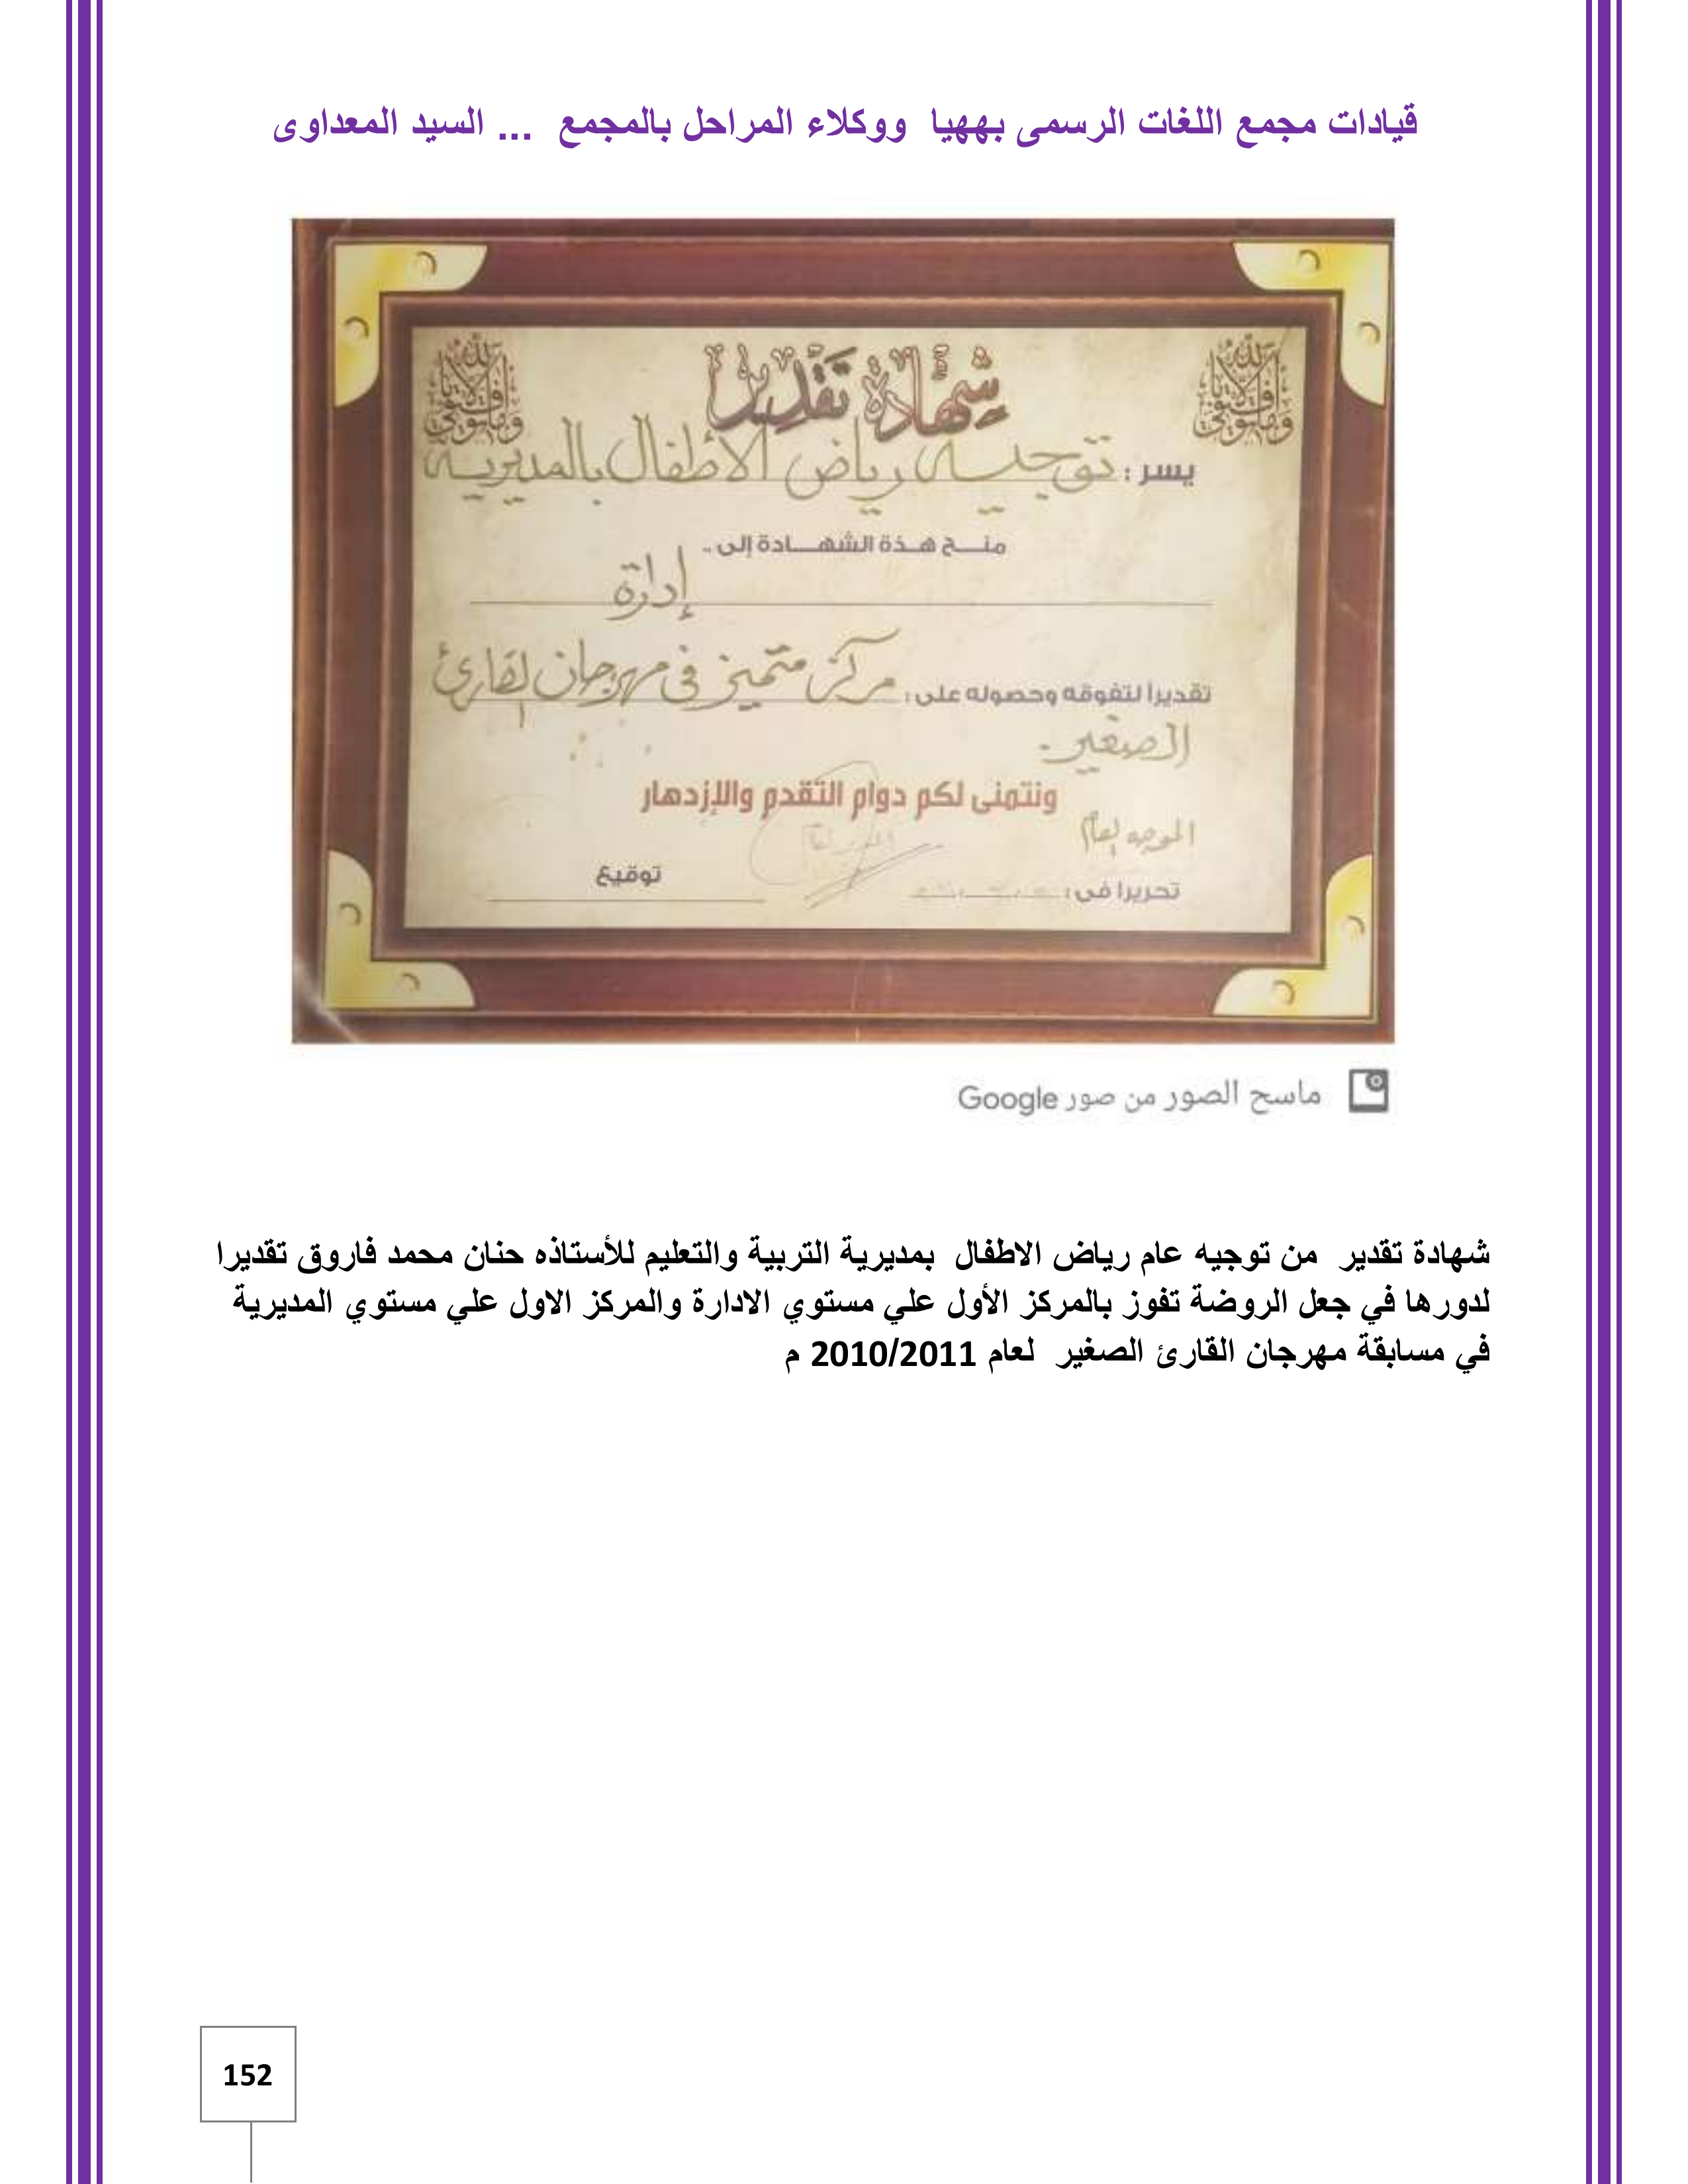 قيادات مجمع اللغات الرسمى بههيا ووكلاء المراحل بالمجمع ... السيد المعداوى
وما توفيقي إلا بالله
شهادة تقدير
وما توفيقي إلا بالله
يسر : توجيه رياض الأطفال بالمديرية
منح هذة الشهادة إلى ..
إدارة
تقديراً لتفوقه وحصوله على : مركز متميز فى مهرجان القارئ
الصغير.
ونتمنى لكم دوام التقدم والإزدهار
الموجه العام
توقيع
تحريرا فى :
ماسح الصور من صور Google
شهادة تقدير من توجيه عام رياض الاطفال بمديرية التربية والتعليم للأستاذه حنان محمد فاروق تقديرا
لدورها في جعل الروضة تفوز بالمركز الأول علي مستوي الادارة والمركز الاول علي مستوي المديرية
في مسابقة مهرجان القارئ الصغير لعام 2010/2011 م
152